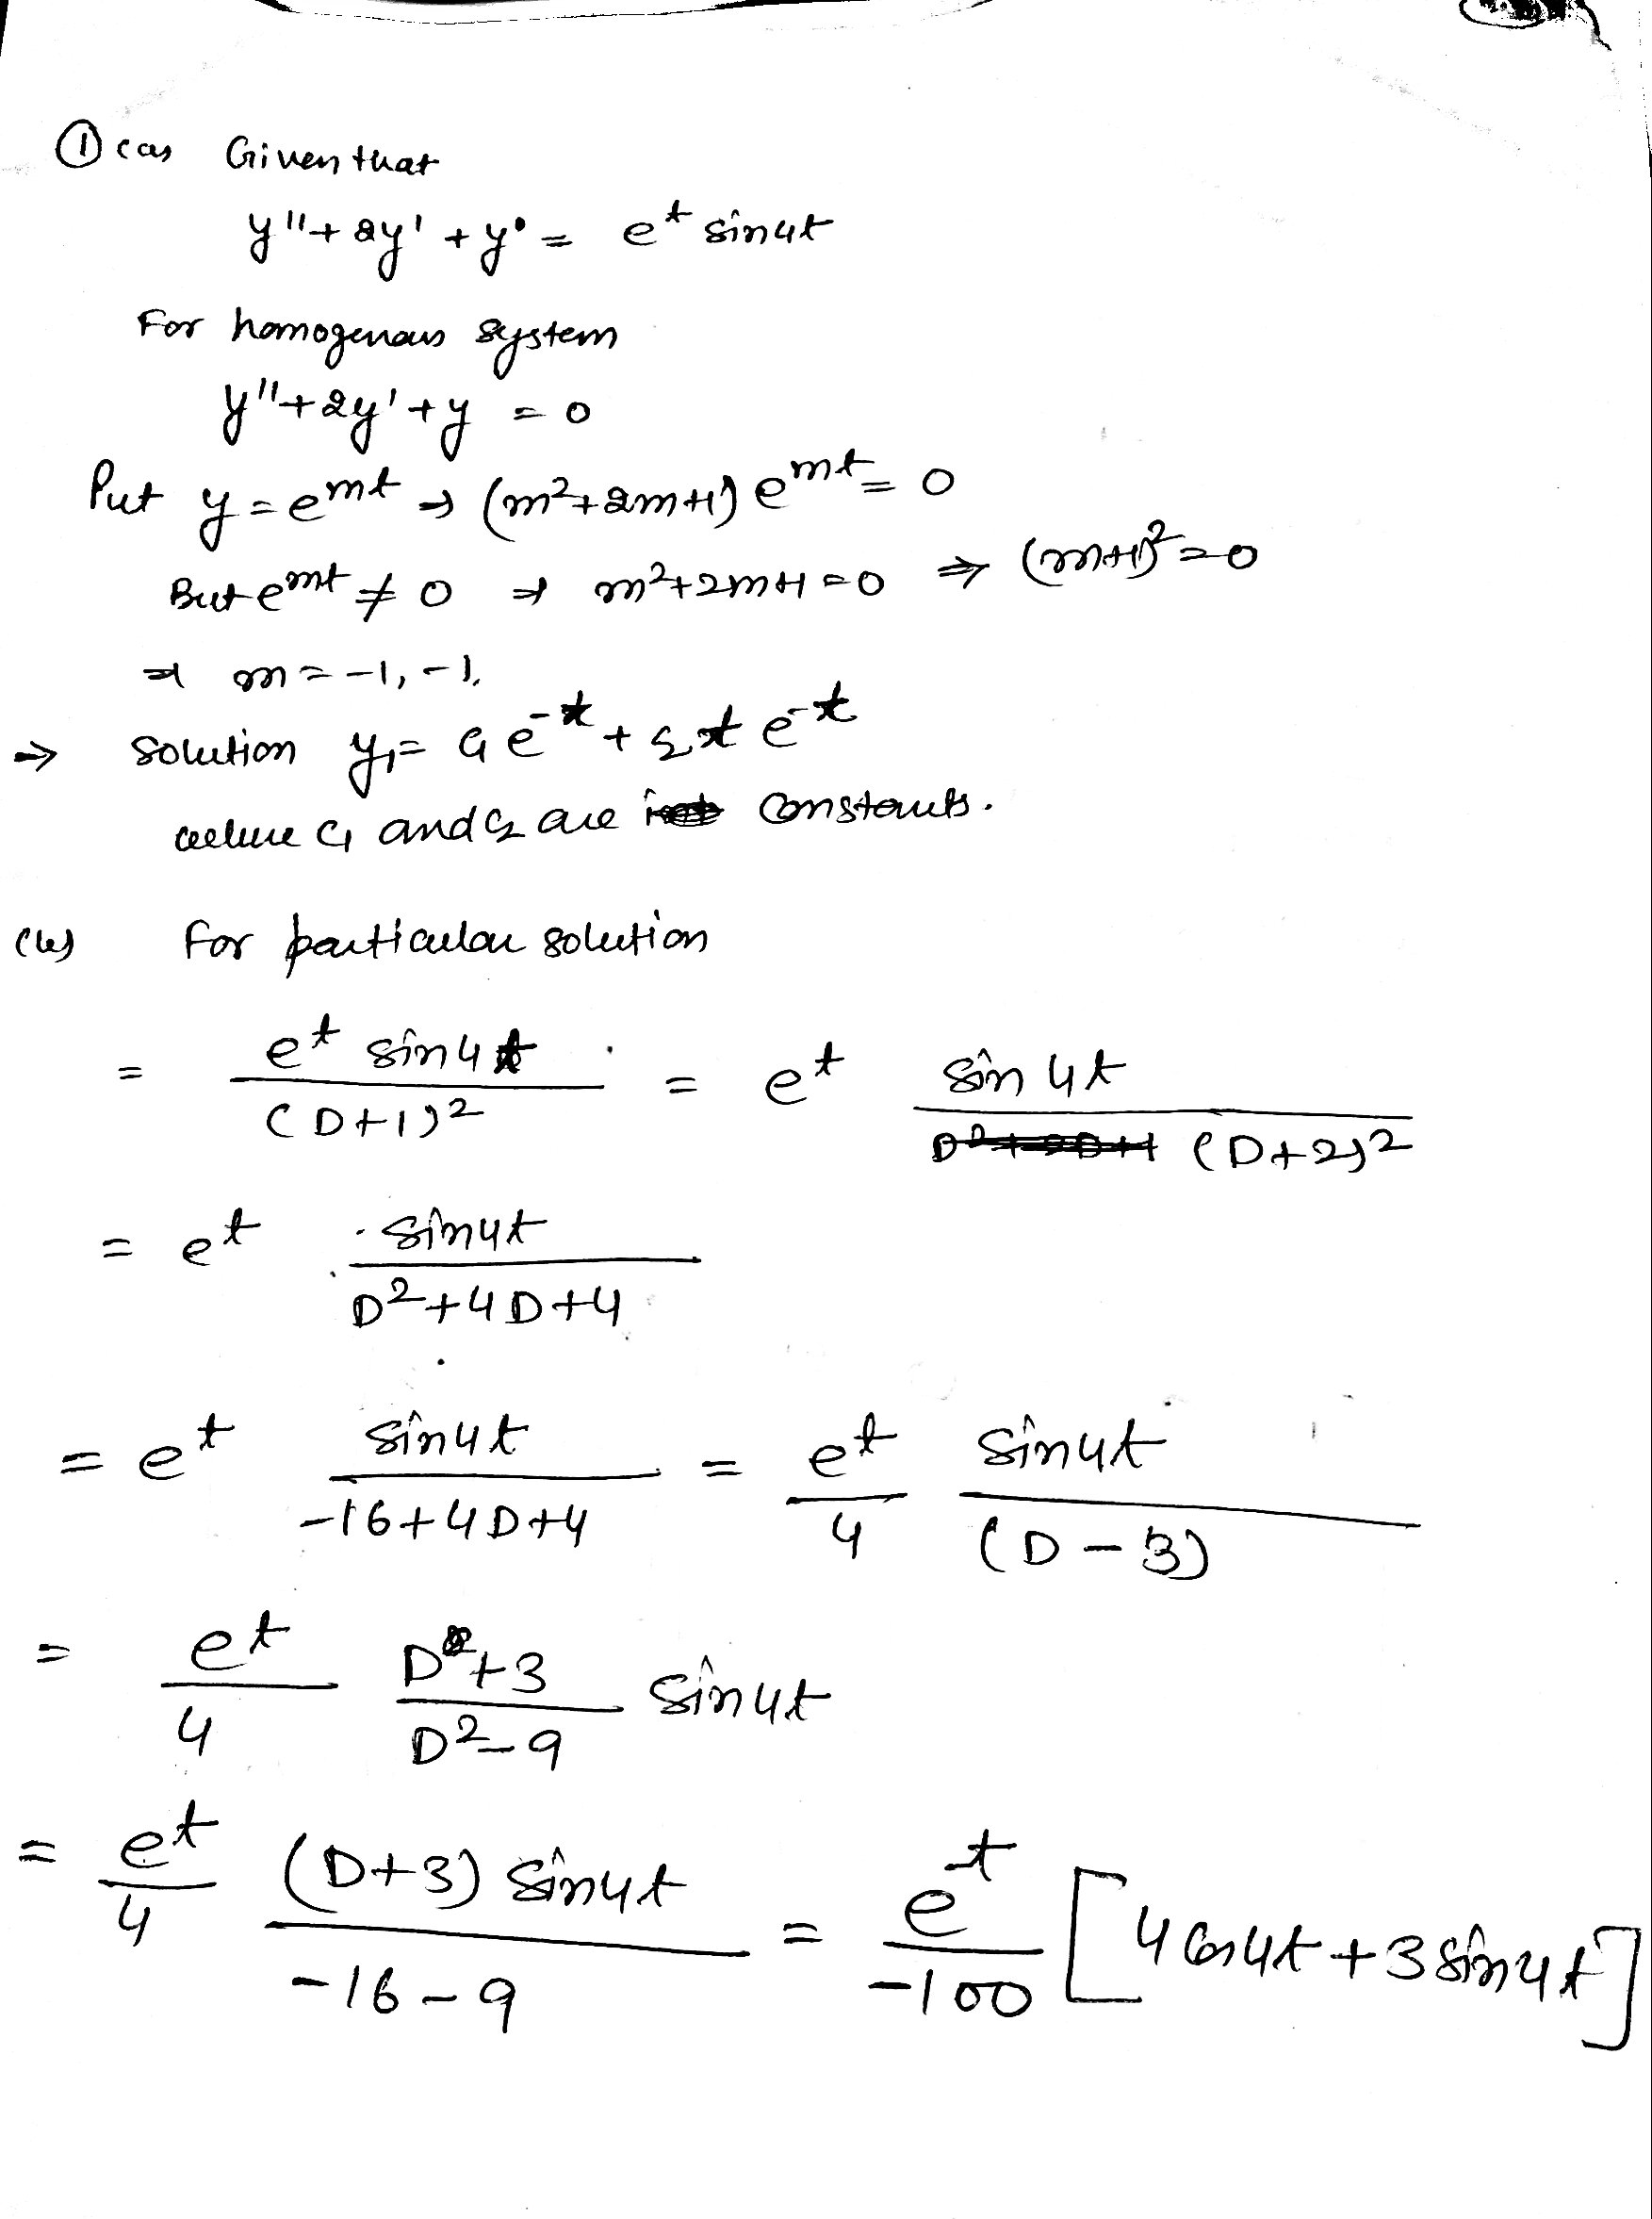 ① (a) Given that
y'' + 2y' + y = e^t sin4t
For homogenous system
y'' + 2y' + y = 0
Put y = e^mt ⇒ (m²+2m+1) e^mt = 0
But e^mt ≠ 0 ⇒ m²+2m+1 = 0 ⇒ (m+1)² = 0
⇒ m = -1, -1.
⇒ Solution y₁ = c₁ e^-t + c₂ t e^-t
where c₁ and c₂ are constants.
(b) For particular solution
= e^t sin4t / (D+1)² = e^t sin 4t / (D+2)²
= e^t sin4t / D²+4D+4
= e^t sin4t / -16+4D+4 = e^t/4 sin4t / (D-3)
= e^t/4 D+3 / D²-9 sin4t
= e^t/4 (D+3) sin4t / -16-9 = e^t/-100 [4 cos4t + 3 sin4t]